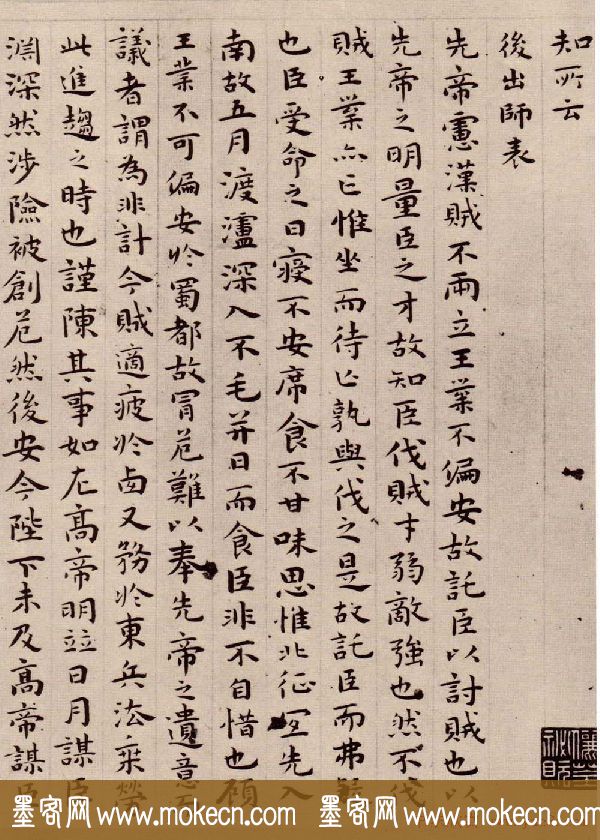 知所云
後出師表
先帝慮漢賊不兩立王業不偏安故託臣以討賊也以
先帝之明量臣之才故知臣伐賊才弱敵強也然不伐
賊王業亦亡惟坐而待亡孰與伐之是故託臣而弗疑
也臣受命之日寢不安席食不甘味思惟北征宜先入
南故五月渡瀘深入不毛并日而食臣非不自惜也顧
王業不可偏安於蜀都故冒危難以奉先帝之遺意而
議者謂為非計今賊適疲於西又務於東兵法乘勞
此進趨之時也謹陳其事如左高帝明竝日月謀臣
淵深然涉險被創危然後安今陛下未及高帝謀臣
墨客网 www.mokecn.com 墨客网 www.mokecn.com